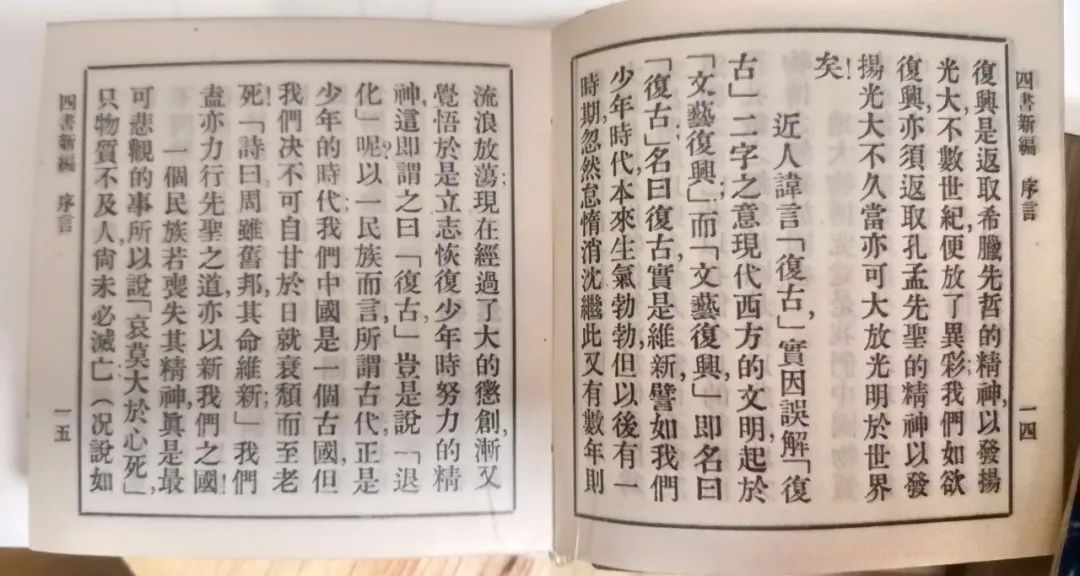 四書新編　序言
一四
復興是返取希臘先哲的精神，以發揚
光大，不數世紀，便放了異彩，我們如欲
復興，亦須返取孔孟先聖的精神以發
揚光大，不久當亦可大放光明於世界
矣！
近人諱言「復古，」實因誤解「復
古」二字之意，現代西方的文明起於
「文藝復興」，而「文藝復興」，即名曰
「復古」，名曰復古，實是維新，譬如我們
少年時代，本來生氣勃勃，但以後有一
時期，忽然怠惰消沈，繼此又有數年則
流浪放蕩；現在經過了大的懲創，漸又
覺悟，於是立志恢復少年時努力的精
神，這即謂之曰「復古」，豈是說「退
化」呢？以一民族而言，所謂古代，正是
少年的時代，我們中國是一個古國，但
我們決不可自甘於日就衰頹而至老
死！「詩曰：周雖舊邦，其命維新；」我們
盍亦力行先聖之道，亦以新我們之國！
一個民族，若喪失其精神，眞是最
可悲觀的事，所以說「哀莫大於心死」，
只物質不及人，尙未必滅亡（況說如
四書新編　序言
一五